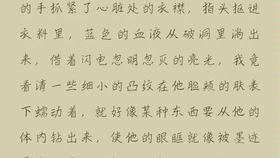 的手抓紧了心脏处的衣襟，指头抠进
衣料里，蓝色的血液从破洞里淌出
来，借着闪电忽明忽灭的亮光，我竟
看清一些细小的凸纹在他脸颊的肤表
下蠕动着，就好像某种东西要从他的
体内钻出来，使他的眼眶就像被墨迹